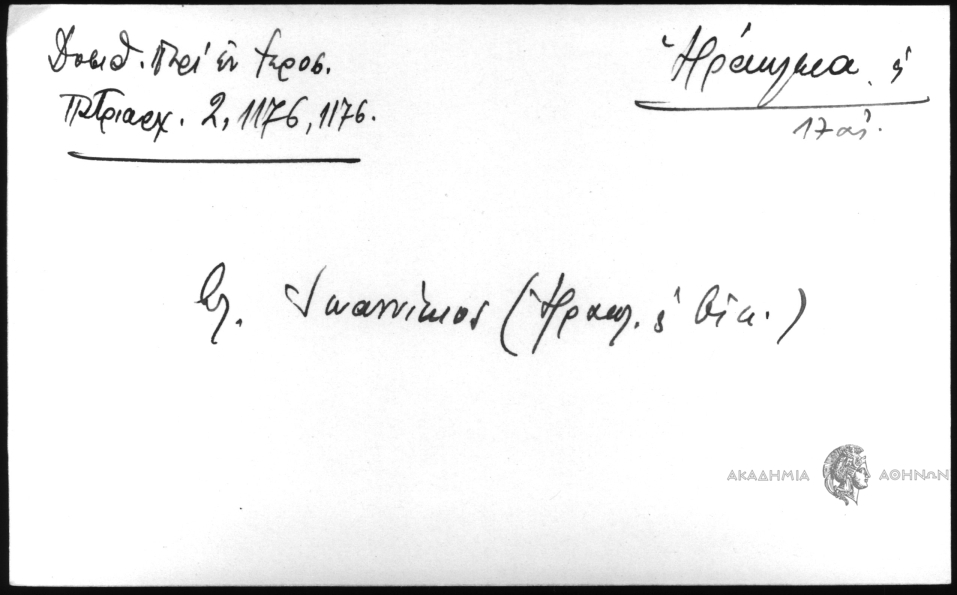 Δοσιθ. Περί ἐν Ἱεροσ.
Πατριαρχ. 2, 1176, 1176.
Ἡράκλεια, ἡ
17 αἰ.
βλ. Ἰωαννίκιος (Ἡρακλ. ἡ
ΑΚΑΔΗΜΙΑ ΑΘΗΝΩΝ